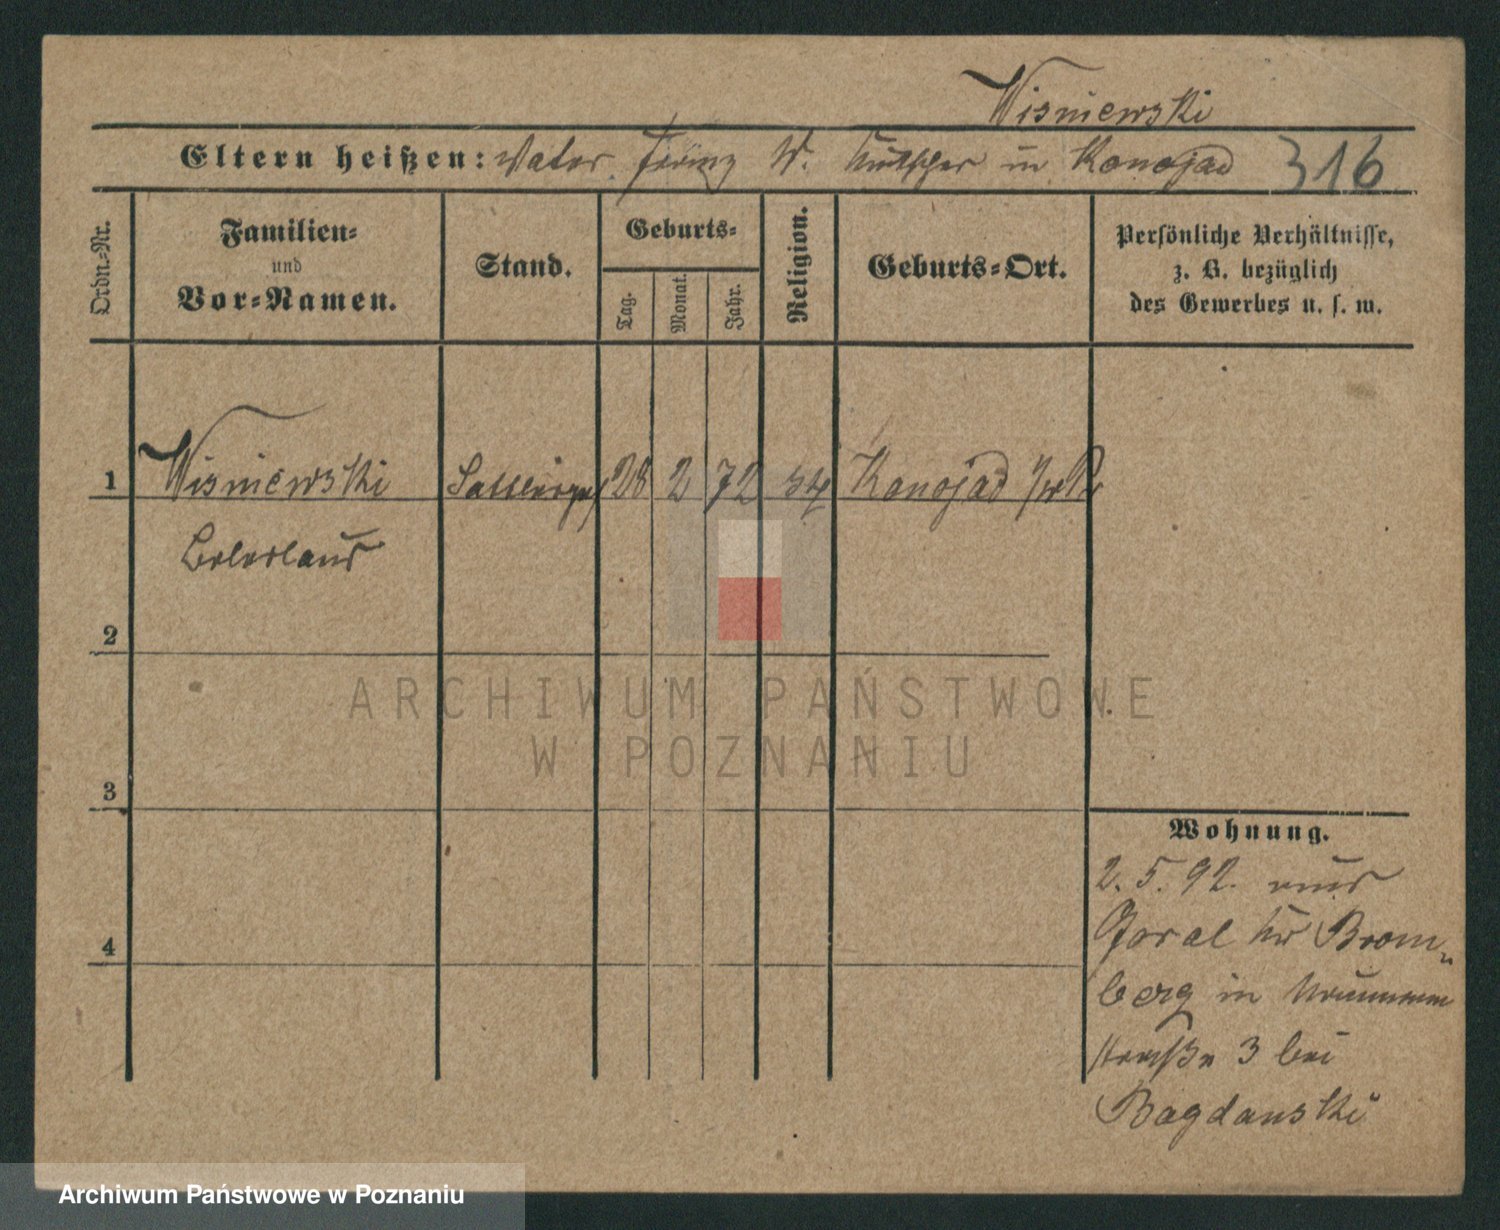 Wisniewski
Eltern heißen: Vater Franz W. Kutscher in Konojad 316
Ordn.-Nr.
Familien-
und
Vor-Namen.
Stand.
Geburts-
Tag.
Monat.
Jahr.
Religion.
Geburts-Ort.
Persönliche Verhältnisse,
z. B. bezüglich
des Gewerbes u. s. w.
1 Wisniewski 28 2 72 Konojad
2
3
4
Wohnung.
2. 5. 92. aus
Goral Kr Brom-
berg in
straße 3 bei
Bagdanski
ARCHIWUM PAŃSTWOWE
W POZNANIU
Archiwum Państwowe w Poznaniu